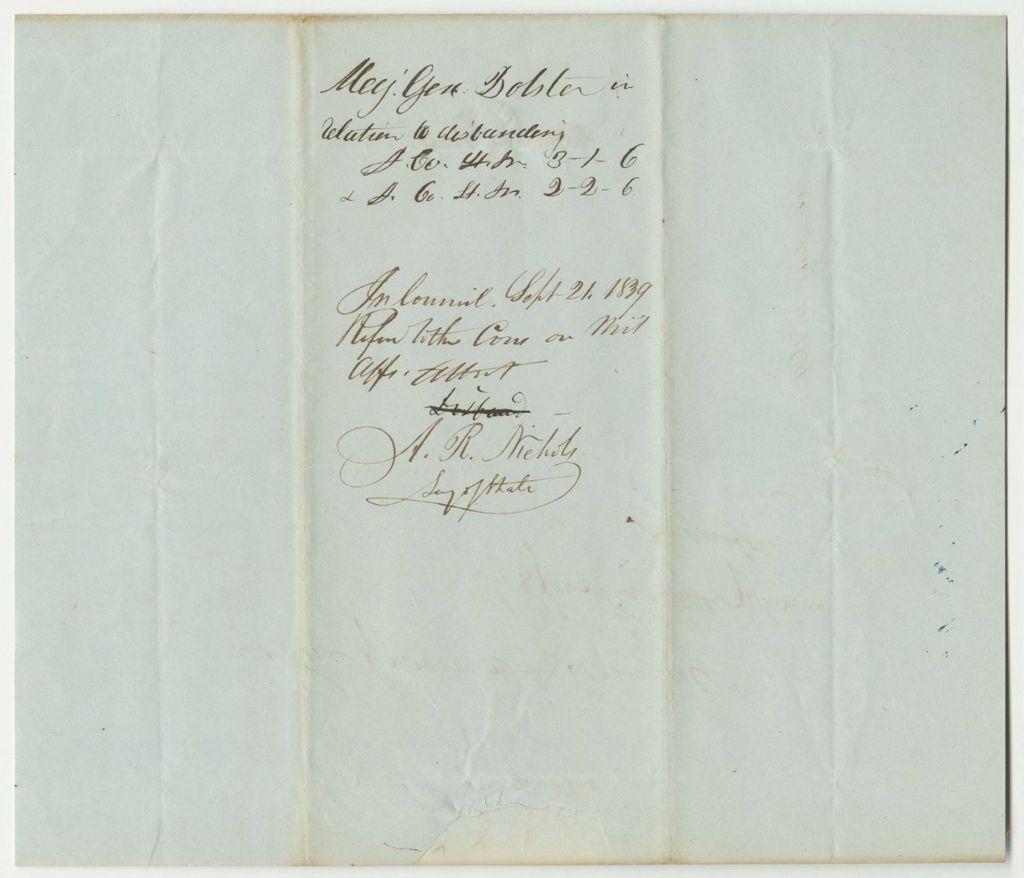 Maj. Gen. Bolster in
relation to disbanding
A. Co. Lt. In. 3-1-6
& A. Co. Lt. In. 2-2-6
In Council. Sept 21. 1839
Refer to the Com on Mil
Affs. Attest
Disband
A. R. Nichols
Secy of State